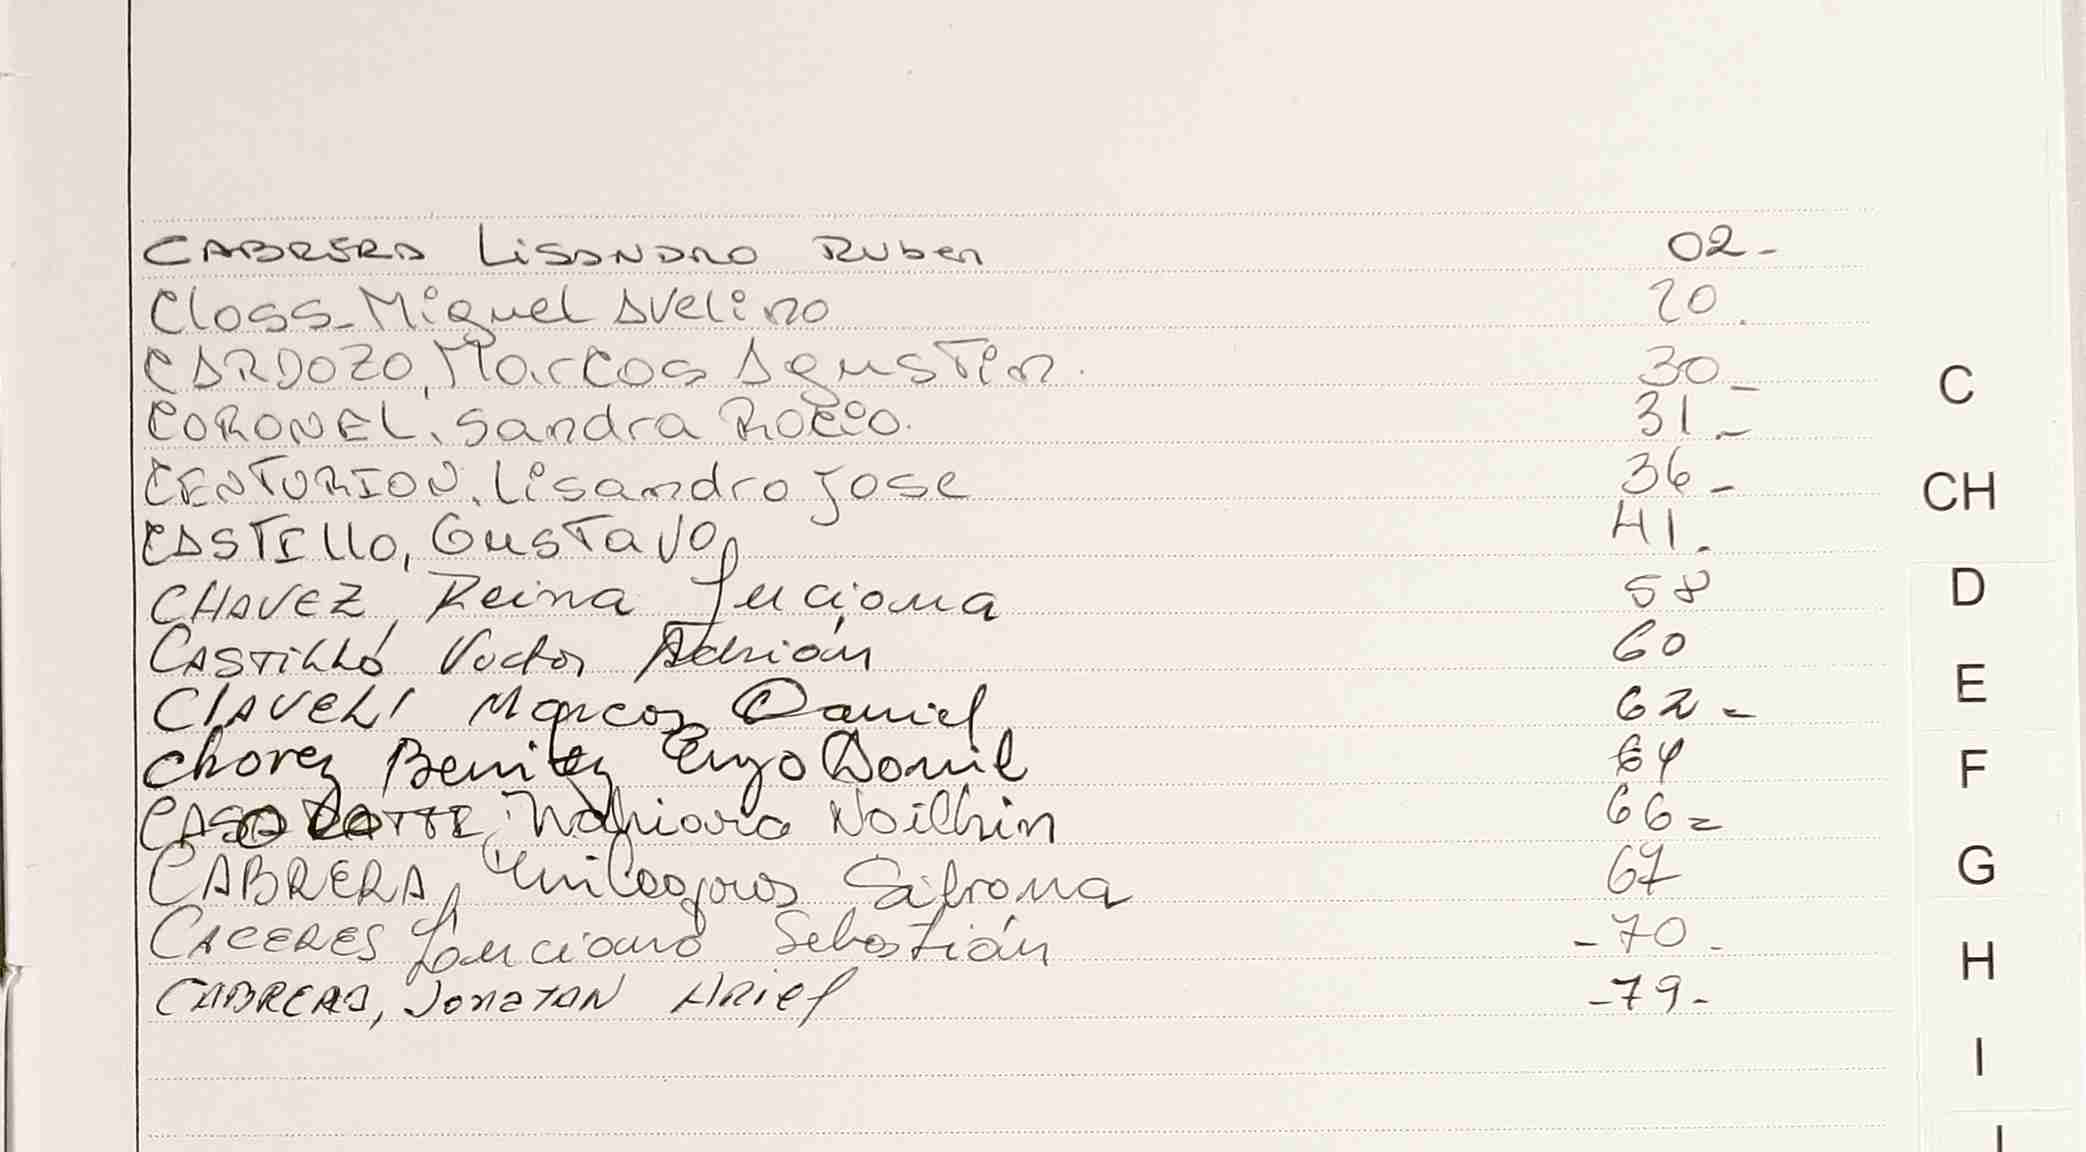 CABRERA Lisandro Ruben 02-
Closs-Miguel Avelino 20.
CARDOZO, Marcos Agustin. 30-
CORONEL, Sandra Rocio. 31.-
CENTURION, Lisandro Jose 36-
CASTILLO, Gustavo 41.
CHAVEZ, Reina Luciana 58
CASTILLO Victor Adrián 60
CLAVELI Marcos Daniel 62-
Chavez Benitez Enzo Daniel 64
Nahiara 66=
CABRERA, Milagros Sabrina 67
CACERES Luciano Sebastián -70-
CABRERA, Jonatan Ariel -79-
C
CH
D
E
F
G
H
I